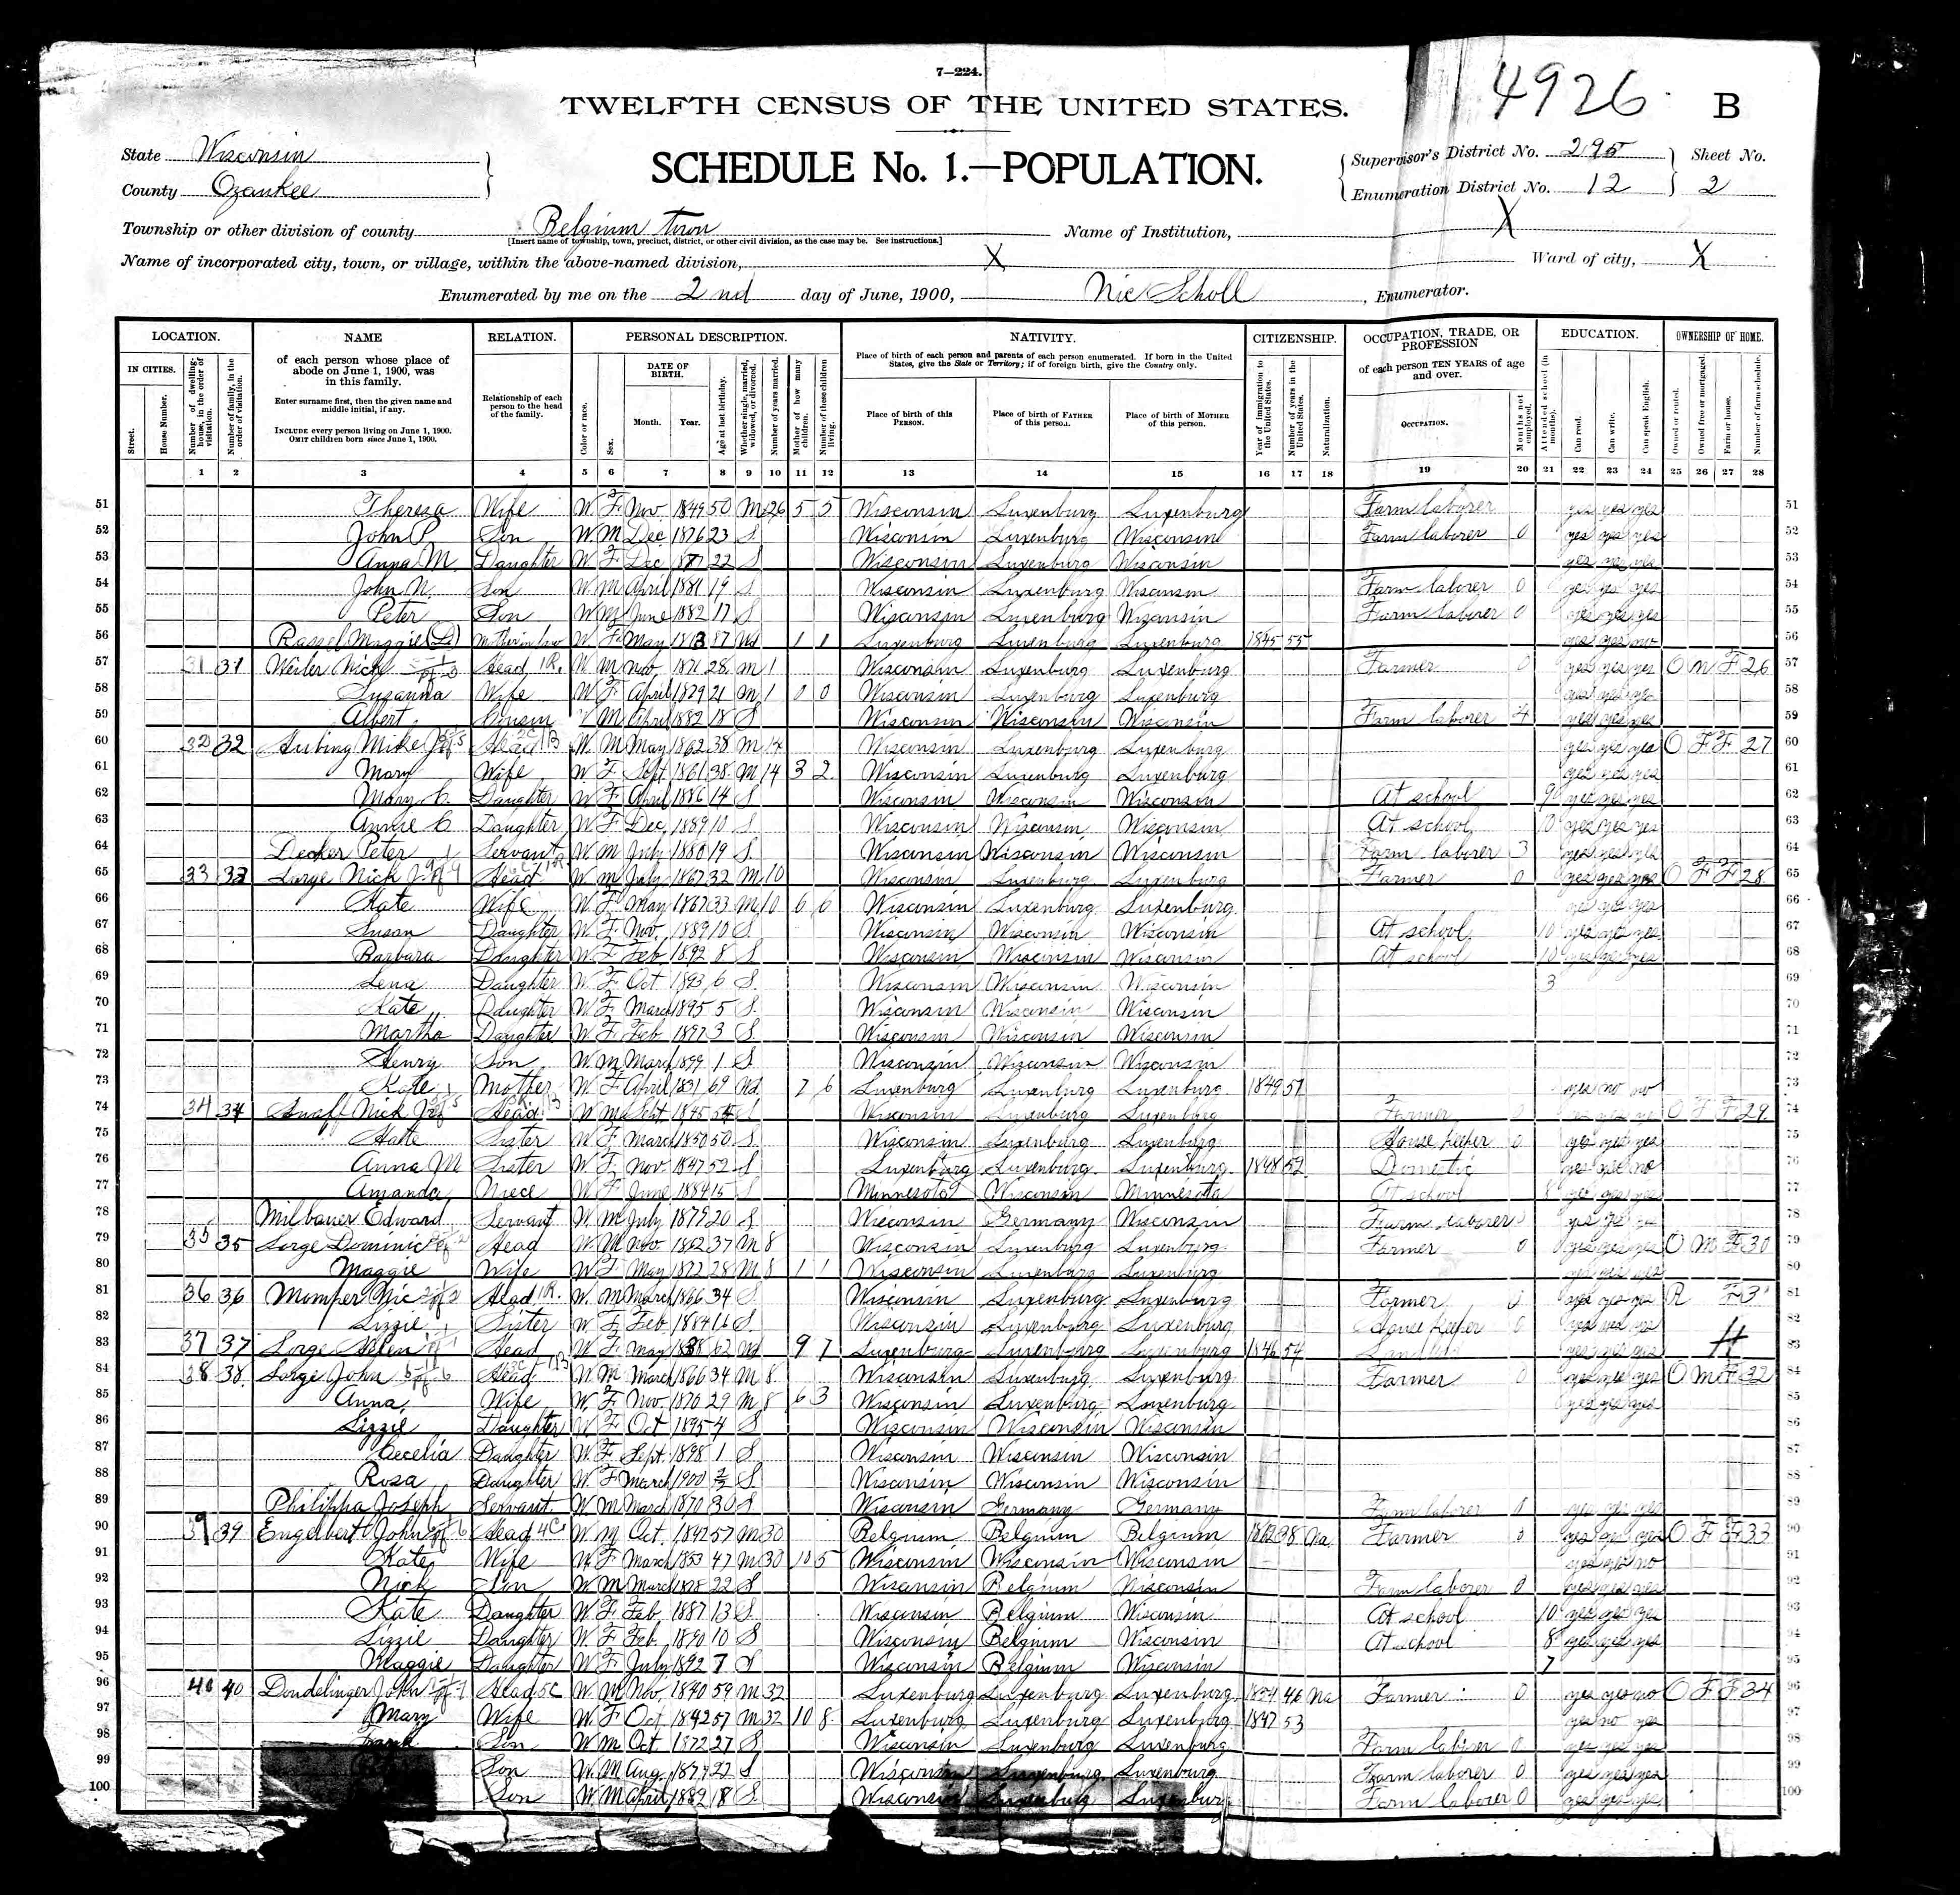 7—224.
4926
B
TWELFTH CENSUS OF THE UNITED STATES.
SCHEDULE No. 1.—POPULATION.
State Wisconsin
County Ozaukee
Supervisor's District No. 295
Enumeration District No. 12
Sheet No. 2
Township or other division of county Belgium town
[Insert name of township, town, precinct, district, or other civil division, as the case may be. See instructions.]
Name of Institution, X
Name of incorporated city, town, or village, within the above-named division, X
Ward of city, X
Enumerated by me on the 2nd day of June, 1900, Nic Scholl, Enumerator.
LOCATION. NAME RELATION. PERSONAL DESCRIPTION. NATIVITY. CITIZENSHIP. OCCUPATION, TRADE, OR PROFESSION EDUCATION. OWNERSHIP OF HOME.
IN CITIES.
Street.
House Number.
Number of dwelling-house, in the order of visitation.
Number of family, in the order of visitation.
of each person whose place of abode on June 1, 1900, was in this family.
Enter surname first, then the given name and middle initial, if any.
INCLUDE every person living on June 1, 1900.
OMIT children born since June 1, 1900.
Relationship of each person to the head of the family.
Color or race.
Sex.
DATE OF BIRTH.
Month. Year.
Age at last birthday.
Whether single, married, widowed, or divorced.
Number of years married.
Mother of how many children.
Number of these children living.
Place of birth of each person and parents of each person enumerated. If born in the United States, give the State or Territory; if of foreign birth, give the Country only.
Place of birth of this PERSON.
Place of birth of FATHER of this person.
Place of birth of MOTHER of this person.
Year of immigration to the United States.
Number of years in the United States.
Naturalization.
of each person TEN YEARS of age and over.
OCCUPATION.
Months not employed.
Attended school (in months).
Can read.
Can write.
Can speak English.
Owned or rented.
Owned free or mortgaged.
Farm or house.
Number of farm schedule.
1 2 3 4 5 6 7 8 9 10 11 12 13 14 15 16 17 18 19 20 21 22 23 24 25 26 27 28
51 Thereza Wife W F Nov 1849 50 M 26 5 5 Wisconsin Luxenburg Luxenburg Farm laborer yes yes yes 51
52 John P. Son W M Dec 1876 23 S Wisconsin Luxenburg Wisconsin Farm laborer 0 yes yes yes 52
53 Anna M. Daughter W F Dec 1877 22 S Wisconsin Luxenburg Wisconsin yes yes yes 53
54 John N. Son W M April 1881 19 S Wisconsin Luxenburg Wisconsin Farm laborer 0 yes yes yes 54
55 Peter Son W M June 1882 17 S Wisconsin Luxenburg Wisconsin Farm laborer 0 yes yes yes 55
56 Maggie Mother in law W F May 1813 87 Wd 1 1 Luxenburg Luxenburg Luxenburg 1845 55 yes yes no 56
57 31 31 Nick Head W M Nov 1871 28 M 1 Wisconsin Luxenburg Luxenburg Farmer 0 yes yes yes O M F 26 57
58 Susanna Wife W F April 1879 21 M 1 0 0 Wisconsin Luxenburg Luxenburg yes yes yes 58
59 Albert Cousin M April 1882 18 S Wisconsin Wisconsin Wisconsin Farm laborer 4 yes yes yes 59
60 32 32 Hubing Mike J Head W M May 1862 38 M 14 Wisconsin Luxenburg Luxenburg yes yes yes O F F 27 60
61 Mary Wife W F Sept 1861 38 M 14 3 2 Wisconsin Luxenburg Luxenburg yes yes yes 61
62 Mary C. Daughter W F April 1886 14 S Wisconsin Wisconsin Wisconsin At school 9 yes yes yes 62
63 Annie C Daughter W F Dec 1889 10 S Wisconsin Wisconsin Wisconsin At school 10 yes yes yes 63
64 Decker Peter Servant W M July 1880 19 S Wisconsin Wisconsin Wisconsin Farm laborer 3 yes yes yes 64
65 33 33 Large Nick J Head W M July 1867 32 M 10 Wisconsin Luxenburg Luxenburg Farmer 0 yes yes yes O F F 28 65
66 Kate Wife W F May 1867 33 M 10 6 6 Wisconsin Luxenburg Luxenburg yes yes yes 66
67 Susan Daughter W F Nov. 1889 10 S Wisconsin Wisconsin Wisconsin At school 10 yes yes yes 67
68 Barbara Daughter W F Feb 1892 8 S Wisconsin Wisconsin Wisconsin At school 10 yes yes yes 68
69 Lena Daughter W F Oct 1893 6 S Wisconsin Wisconsin Wisconsin 3 69
70 Kate Daughter W F March 1895 5 S Wisconsin Wisconsin Wisconsin 70
71 Martha Daughter W F Feb 1897 3 S Wisconsin Wisconsin Wisconsin 71
72 Henry Son W M March 1899 1 S Wisconsin Wisconsin Wisconsin 72
73 Kate Mother W F April 1831 69 Wd 7 6 Luxenburg Luxenburg Luxenburg 1849 51 yes no no 73
74 34 34 Nick Head W M Sept 1845 54 S Wisconsin Luxenburg Luxenburg Farmer O F F 29 74
75 Kate Sister W F March 1850 50 S Wisconsin Luxenburg Luxenburg House keeper 0 yes yes yes 75
76 Anna M Sister W F Nov 1847 52 S Luxenburg Luxenburg Luxenburg 1848 52 Domestic yes yes no 76
77 Amanda Niece W F June 1884 15 S Minnesota Wisconsin Minnesota At school 8 yes yes yes 77
78 Milbauer Edward Servant W M July 1879 20 S Wisconsin Germany Wisconsin Farm laborer yes yes yes 78
79 35 35 Lorge Dominic Head W M Nov 1862 37 M 8 Wisconsin Luxenburg Luxenburg Farmer 0 yes yes yes O M F 30 79
80 Maggie Wife W F May 1872 28 M 8 1 1 Wisconsin Luxenburg Luxenburg yes yes yes 80
81 36 36 Momper Nic Head W M March 1866 34 S Wisconsin Luxenburg Luxenburg Farmer 0 yes yes yes R F 31 81
82 Lizzie Sister W F Feb 1884 16 S Wisconsin Luxenburg Luxenburg House keeper 0 yes yes yes 82
83 37 37 Lorge Helen Head W F May 1838 62 Wd 9 7 Luxenburg Luxenburg Luxenburg 1846 54 yes yes yes H 83
84 38 38 Lorge John Head W M March 1866 34 M 8 Wisconsin Luxenburg Luxenburg Farmer 0 yes yes yes O M F 32 84
85 Anna Wife W F Nov 1870 29 M 8 6 3 Wisconsin Luxenburg Luxenburg yes yes yes 85
86 Lizzie Daughter W F Oct 1895 4 S Wisconsin Wisconsin Wisconsin 86
87 Cecelia Daughter W F Sept 1898 1 S Wisconsin Wisconsin Wisconsin 87
88 Rosa Daughter W F March 1900 S Wisconsin Wisconsin Wisconsin 88
89 Philippa Joseph Servant W M March 1870 30 S Wisconsin Germany Germany Farm laborer 0 yes yes yes 89
90 39 39 Engelbert John Head 4C W M Oct. 1842 57 M 30 Belgium Belgium Belgium 1862 38 Na Farmer 0 yes yes yes O F F 33 90
91 Kate Wife W F March 1853 47 M 30 10 5 Wisconsin Wisconsin Wisconsin yes yes no 91
92 Nick Son W M March 1878 22 S Wisconsin Belgium Wisconsin Farm laborer 0 yes yes yes 92
93 Kate Daughter W F Feb 1887 13 S Wisconsin Belgium Wisconsin At school 10 yes yes yes 93
94 Lizzie Daughter W F Feb 1890 10 S Wisconsin Belgium Wisconsin At school 8 yes yes yes 94
95 Maggie Daughter W F July 1892 7 S Wisconsin Belgium Wisconsin 7 95
96 40 40 Dondelinger John Head 5C W M Nov 1840 59 M 32 Luxenburg Luxenburg Luxenburg 1854 46 Na Farmer 0 yes yes no O F F 34 96
97 Mary Wife W F Oct 1842 57 M 32 10 8 Luxenburg Luxenburg Luxenburg 1847 53 yes no yes 97
98 Frank Son W M Oct 1872 27 S Wisconsin Luxenburg Luxenburg Farm laborer 0 yes yes yes 98
99 Son W M Aug 1877 22 S Wisconsin Luxenburg Luxenburg Farm laborer 0 yes yes yes 99
100 Son W M April 1882 18 S Wisconsin Luxenburg Luxenburg Farm laborer 0 yes yes yes 100